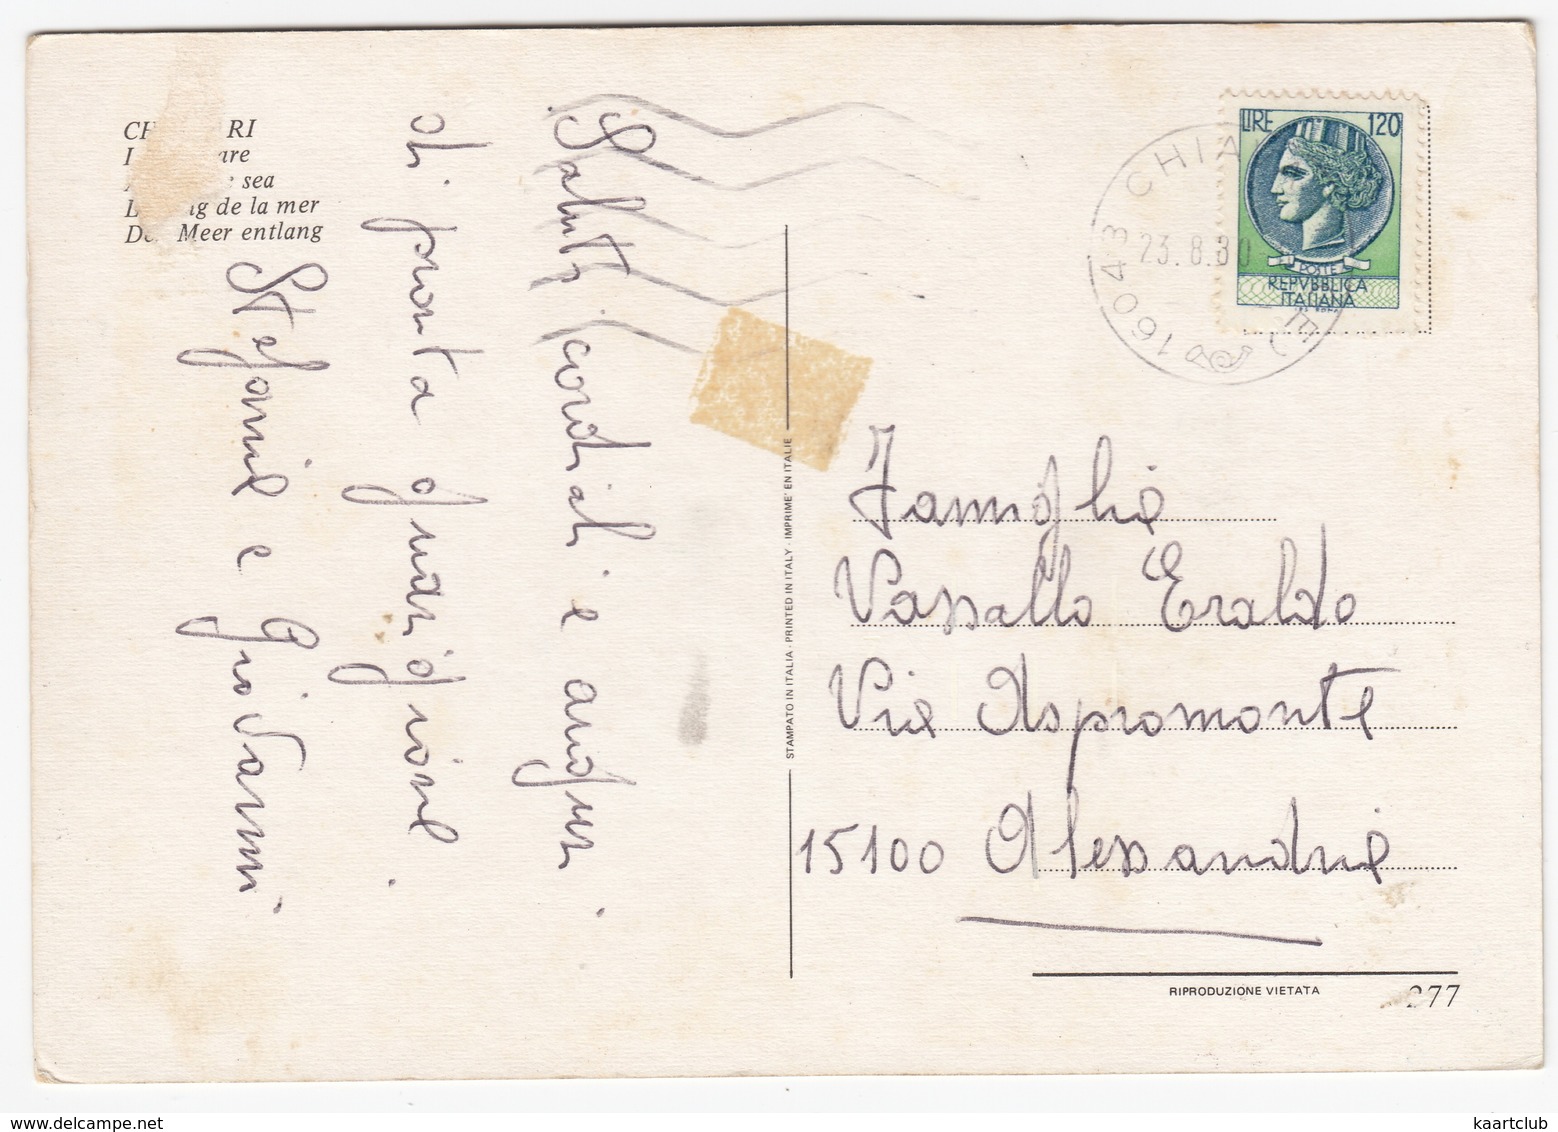 RI
are
sea
g de la mer
Meer entlang
Saluti cordiali e auguri
di pronta guarigione
Stefania e Giovanni
STAMPATO IN ITALIA - PRINTED IN ITALY - IMPRIME' EN ITALIE
LIRE 120
POSTE
REPVBBLICA
ITALIANA
16043 CHIA
23.8.80
Famiglia
Vassallo Eraldo
Via Aspromonte
15100 Alessandria
RIPRODUZIONE VIETATA
277
kaartclub